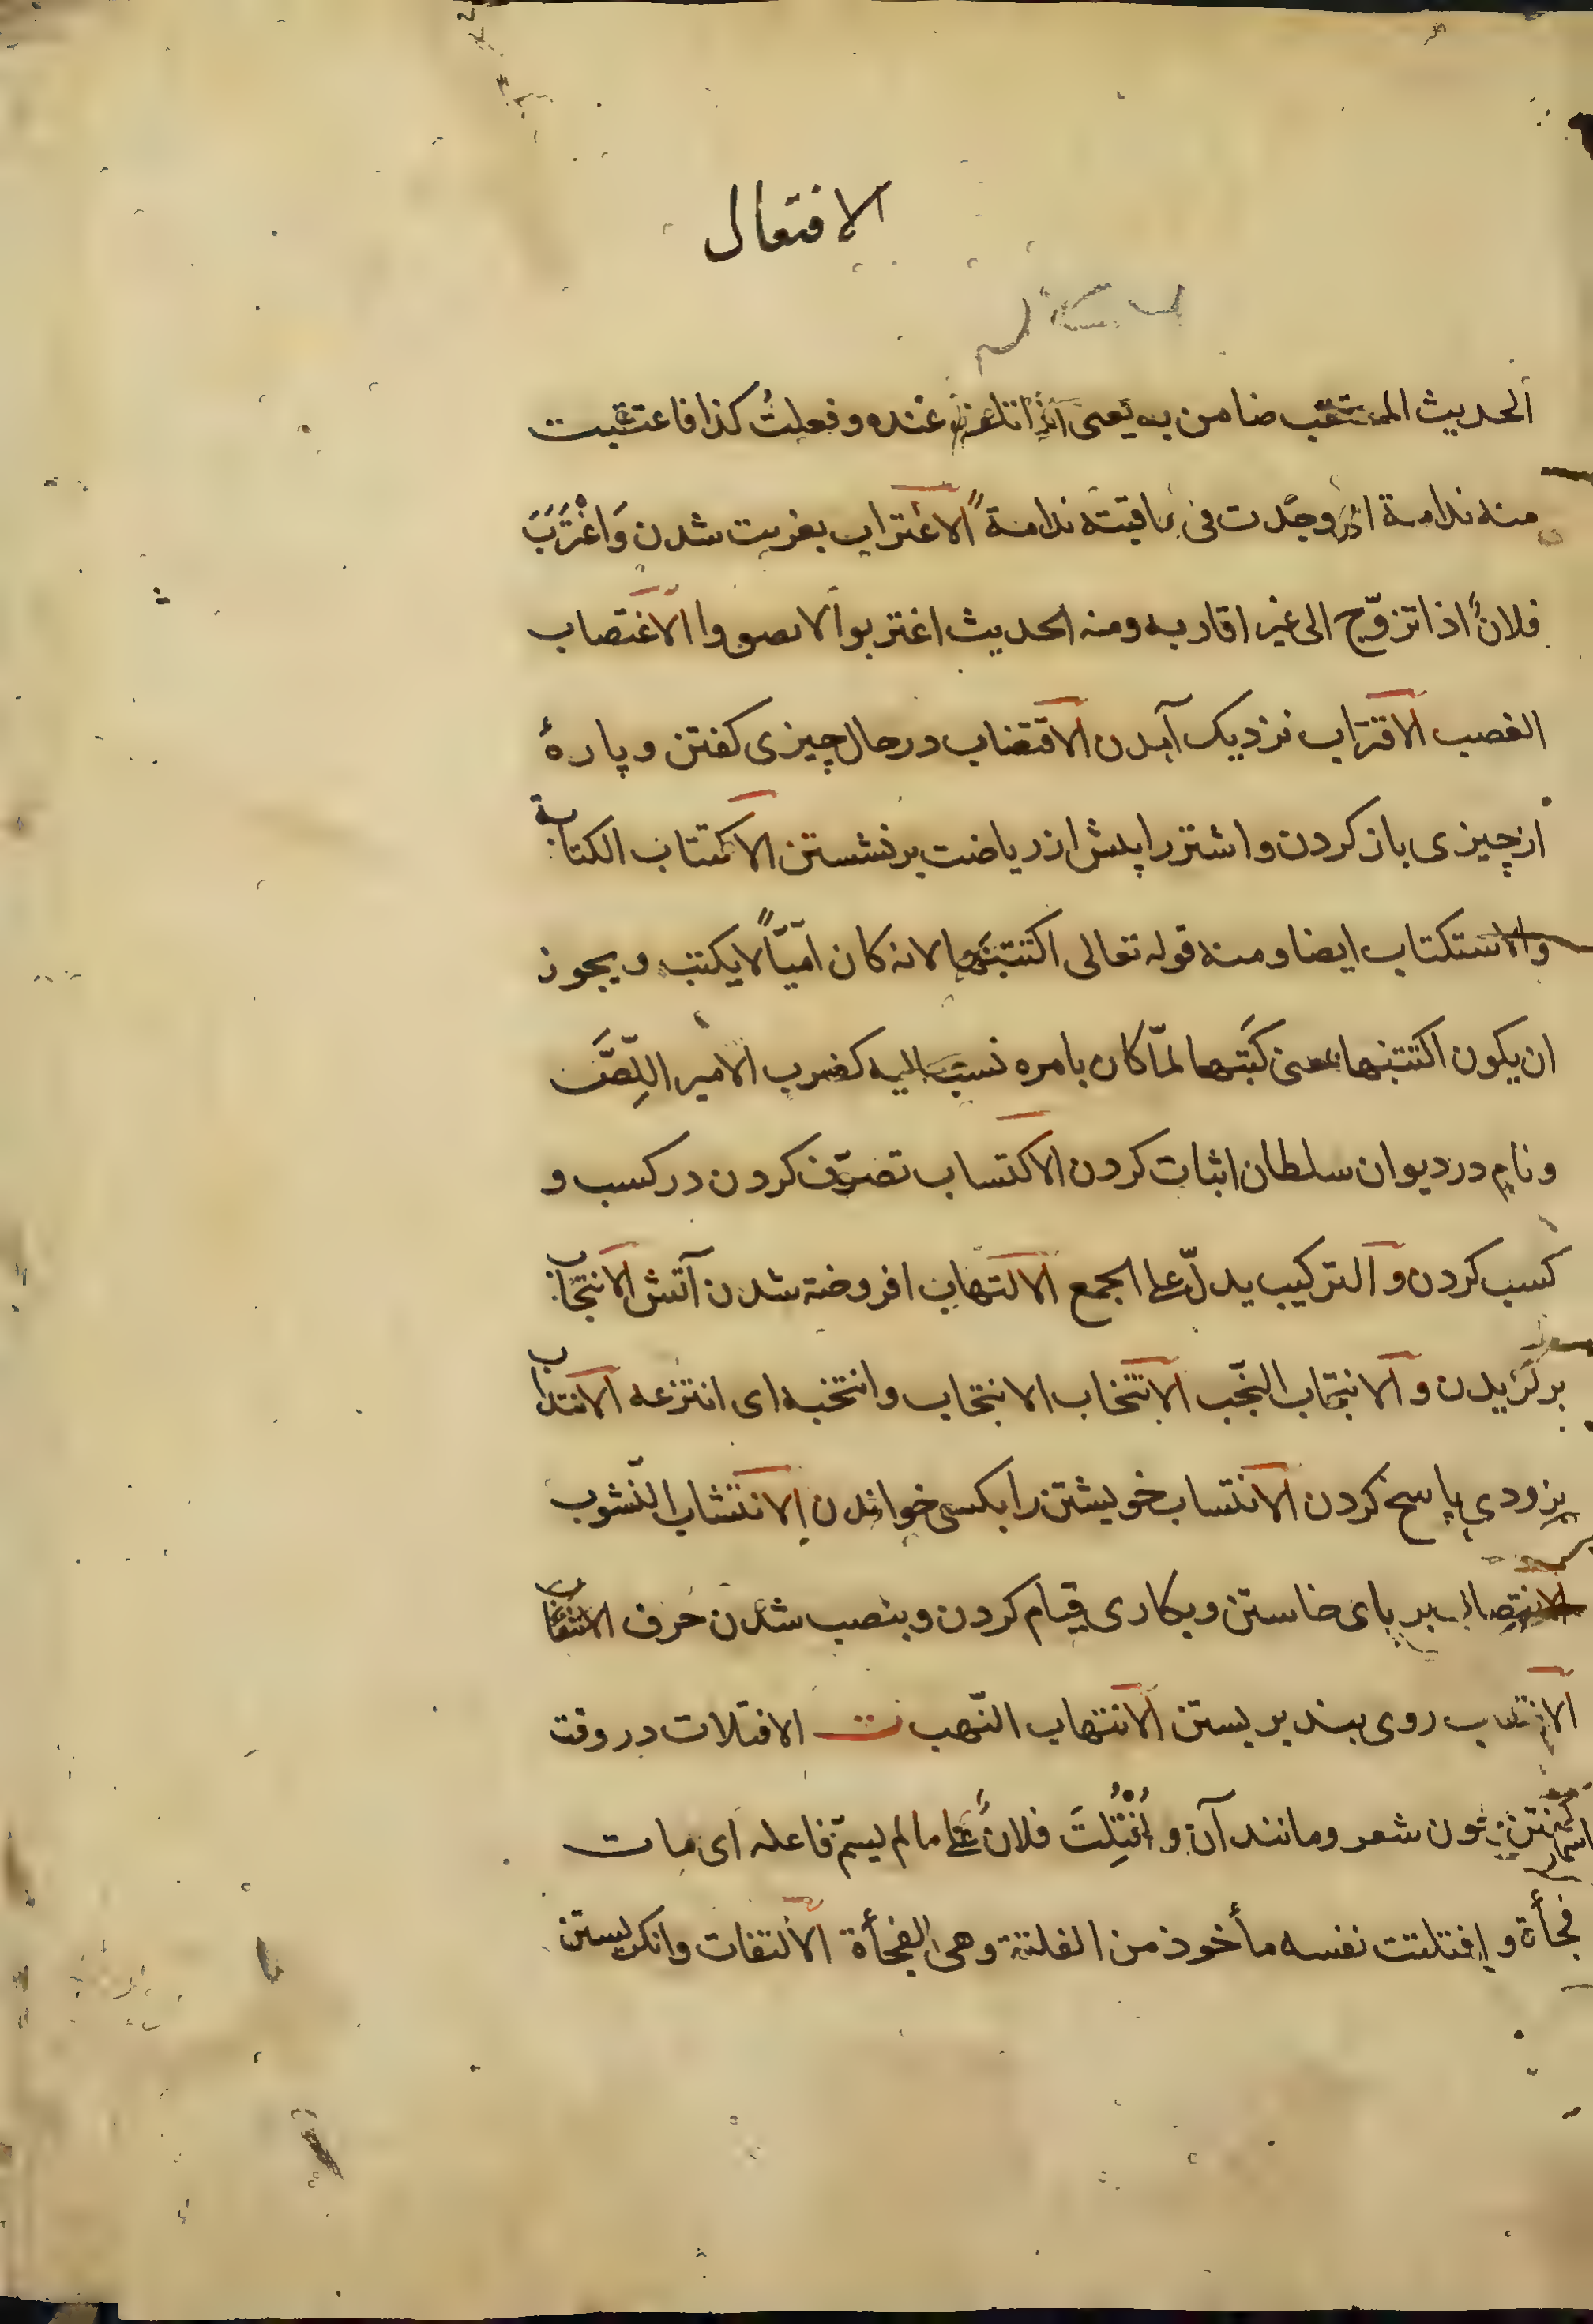 الافتعال
الحديث المعتقب ضامن به يعنى اذا تلف عنده وفعلتُ كذا فاعتقبت
منه ندامة اذا وجَدت فى عاقبته ندامةً الاغتراب بغربت شدن وَاغْتَرَبَ
فلانٌ اذا تزوّج الى غير اقاربه ومنه الحديث اغتربوا لا تضووا الاغتصاب
الغصب الاقتراب نزديك آمدن الاقتضاب درحال چيزى كفتن و پارهٔ
از چيزى باز كردن و اشتر را پيش از رياضت برنشستن الاكتتاب الكتابة
والاستكتاب ايضا ومنه قوله تعالى اكتتبَها لانه كان اُمّيّاً لا يكتب ويجوز
ان يكون اكتتبها بمعنى كَتَبها لمّا كان بامره نسب اليه كضرب الامير اللِّصَّ
و نام در ديوان سلطان اثبات كردن الاكتساب تصرّف كردن در كسب و
كسب كردن و التركيب يدلّ على الجمع الالتهاب افروخته شدن آتش الانتخاب
بركزيدن و الانتجاب النجب الانتخاب الانتجاب وانتخبه اى انتزعه الانتداب
بزودى پاسخ كردن الانتساب خويشتن را بكسى خواندن الانتشاب النّشوب
الانتصاب بر پاى خاستن و بكارى قيام كردن و بنصب شدن حرف
الانتقاب روى بند بر بستن الانتهاب النّهب ت الافتلات در وقت
كفتن چون شعر و مانند آن و اُفْتُلِتَ فلانٌ على ما لم يسمّ فاعله اى مات
فجأة و افتلتت نفسه مأخوذ من الفلتة وهى الفجأة الالتفات وانكريستن